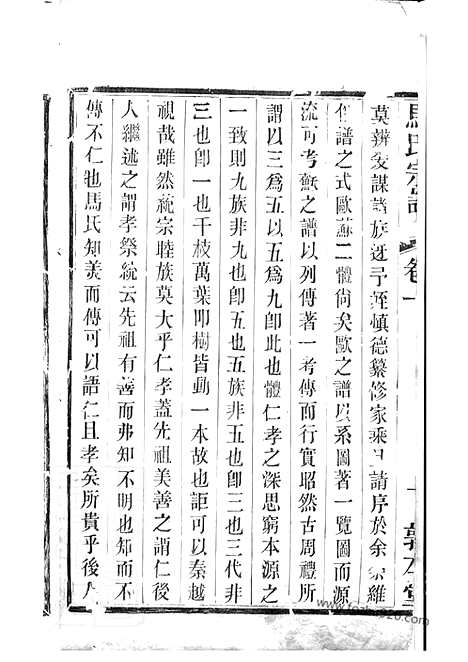 馬氏宗譜
卷一
敦本堂
莫辨爰謀諸族迓予姪慎德纂修家乘且請序於余余維
作譜之式歐蘇二體尚矣歐之譜以系圖著一覽圖而源
流可考蘇之譜以列傳著一考傳而行實昭然古周禮所
謂以三為五以五為九卽此也體仁孝之深思窮本源之
一致則九族非九也卽五也五族非五也卽三也三代非
三也卽一也千枝萬葉叩樹皆動一本故也詎可以秦越
視哉雖然統宗睦族莫大乎仁孝蓋先祖美善之謂仁後
人繼述之謂孝祭統云先祖有善而弗知不明也知而不
傳不仁也馬氏知美而傳可以語仁且孝矣所貴乎後人